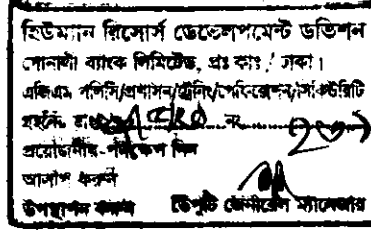 হিউম্যান রিসোর্স ডেভেলপমেন্ট ডিভিশন
সোনালী ব্যাংক লিমিটেড, প্রঃ কাঃ, ঢাকা।
এজিএম পলিসি/প্রশাসন/ট্রেনিং/পেনশন/সিকিউরিটি
নং
প্রয়োজনীয় পদক্ষেপ নিন
আলাপ করুন
উপস্থাপন করুন ডেপুটি জেনারেল ম্যানেজার